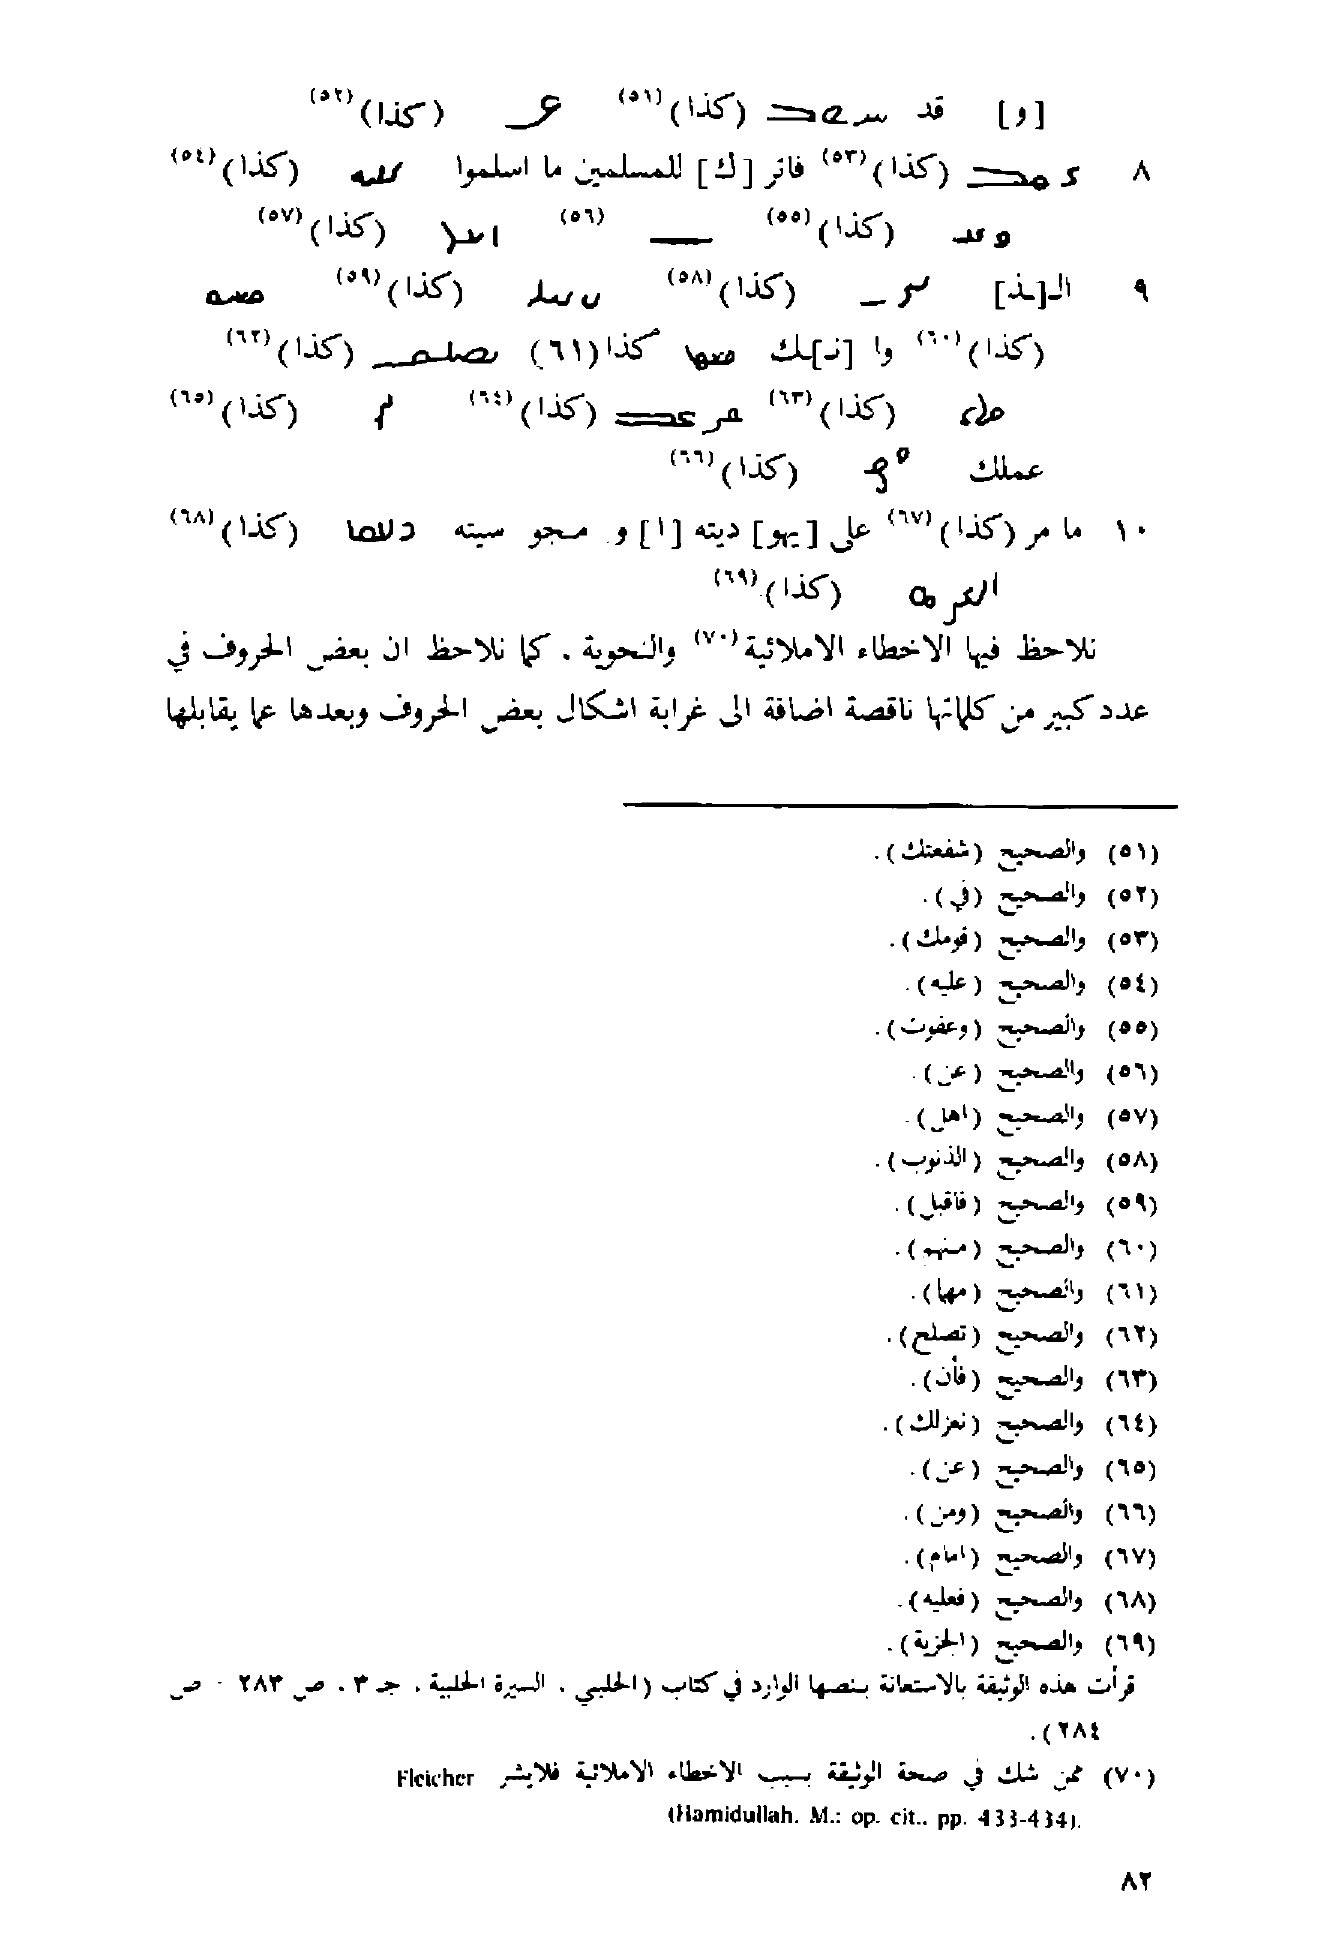 [و] قد (كذا)(٥١) (كذا)(٥٢)
٨ (كذا)(٥٣) فاتر [ك] للمسلمين ما اسلموا (كذا)(٥٤)
(كذا)(٥٥) (٥٦) (كذا)(٥٧)
٩ الـ[ـذ] (كذا)(٥٨) (كذا)(٥٩)
(كذا)(٦٠) وا [نـ]ـك كذا(٦١) (كذا)(٦٢)
(كذا)(٦٣) (كذا)(٦٤) (كذا)(٦٥)
عملك (كذا)(٦٦)
١٠ ما مر (كذا)(٦٧) على [يهو] ديته [ا] و مجو سيته (كذا)(٦٨)
(كذا)(٦٩)
نلاحظ فيها الاخطاء الاملائية(٧٠) والنحوية . كما نلاحظ ان بعض الحروف في
عدد كبير من كلماتها ناقصة اضافة الى غرابة اشكال بعض الحروف وبعدها عما يقابلها
(٥١) والصحيح (شفعتك).
(٥٢) والصحيح (في).
(٥٣) والصحيح (قومك).
(٥٤) والصحيح (عليه).
(٥٥) والصحيح (وعفوت).
(٥٦) والصحيح (عن).
(٥٧) والصحيح (اهل).
(٥٨) والصحيح (الذنوب).
(٥٩) والصحيح (فأقبل).
(٦٠) والصحيح (منهم).
(٦١) والصحيح (مهما).
(٦٢) والصحيح (تصلح).
(٦٣) والصحيح (فأن).
(٦٤) والصحيح (نعزلك).
(٦٥) والصحيح (عن).
(٦٦) والصحيح (ومن).
(٦٧) والصحيح (امام).
(٦٨) والصحيح (فعليه).
(٦٩) والصحيح (الجزية).
قرأت هذه الوثيقة بالاستعانة بنصها الوارد في كتاب (الحلبي . السيرة الحلبية . جـ ٣ . ص ٢٨٣ - ص
٢٨٤).
(٧٠) ممن شك في صحة الوثيقة بسبب الاخطاء الاملائية فلايشر Fleicher
(Hamidullah. M.: op. cit.. pp. 433-434).
٨٢